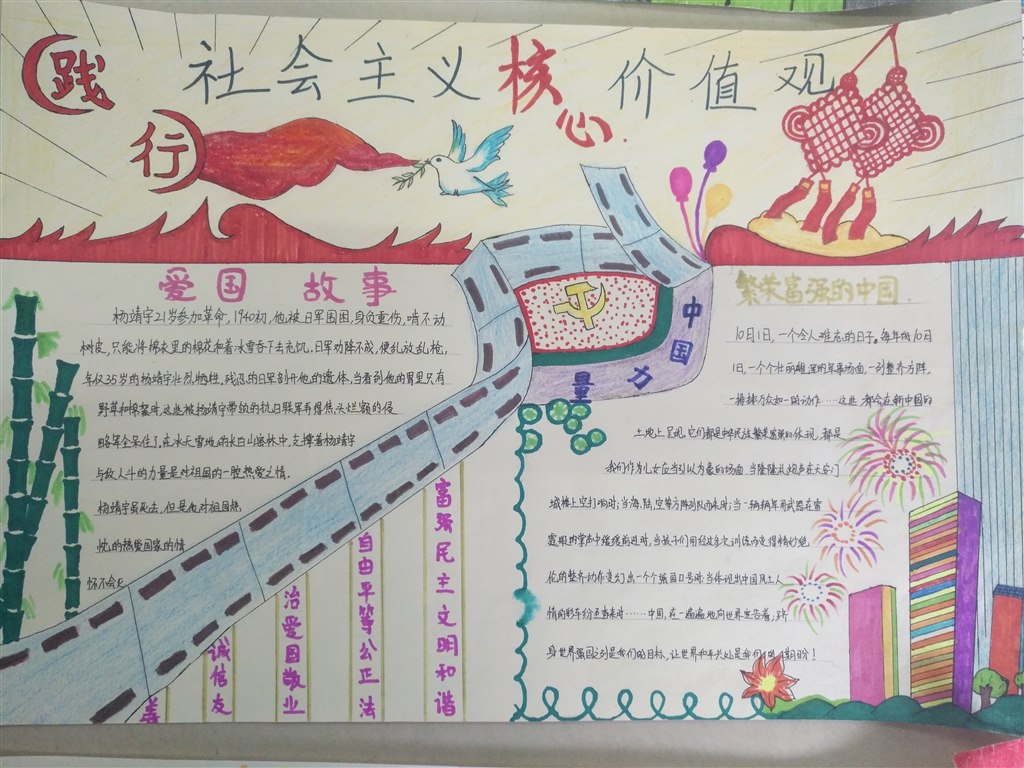 践行
社会主义核心价值观
爱国 故事
杨靖宇21岁参加革命,1940初,他被日军围困,身负重伤,啃不动
树皮,只能将棉衣里的棉花和着冰雪吞下去充饥。日军劝降不成,便乱放乱枪,
年仅35岁的杨靖宇壮烈牺牲。残忍的日军剖开他的遗体,当看到他的胃里只有
野草和棉絮时,这些被杨靖宇带领的抗日联军弄得焦头烂额的侵
略军全呆住了。在冰天雪地的长白山密林中,支撑着杨靖宇
与敌人斗的力量是对祖国的一腔热爱之情。
杨靖宇虽死去,但是他对祖国热
忱的热爱国家的情
怀不会
中国力量
富强民主文明和谐
自由平等公正法
治爱国敬业
诚信友
善
繁荣富强的中国
10月1日,一个令人难忘的日子。每年的10月
1日,一个个壮丽雄浑的军事场面,一列整齐方阵,
一排排万众如一的动作……这些都会在新中国的
土地上呈现,它们都是中华民族繁荣富强的体现,都是
我们作为儿女应当引以为豪的场面。当隆隆礼炮声在天安门
城楼上空打响时;当海、陆、空等方阵列队而来时;当一辆辆军用武器在雷
震眼的掌声中缓缓前进时,当孩子们用经过多次训练而变得精妙绝
伦的整齐动作变幻出一个个强国口号时;当体现出中国风土人
情的彩车纷至沓来时……中国,在一遍遍地向世界宣告着:跻
身世界强国之列是我们的目标,让世界和平共处是我们的期盼!